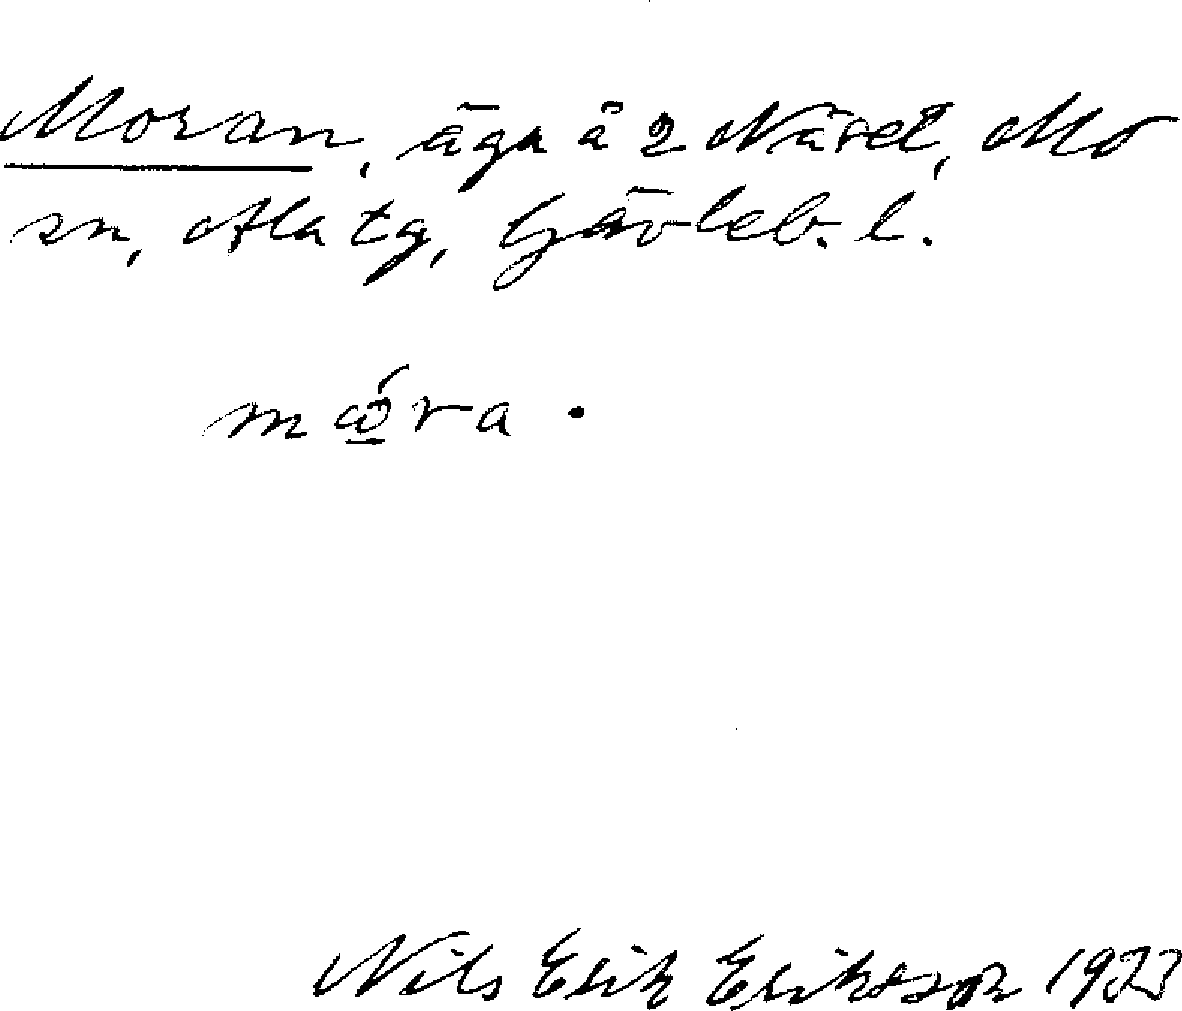 Moran, äga å 2 Näset, Mo
sn, Ala tg, Gävleb. l.
mώ̲ra .
Nils Erik Eriksson 1933